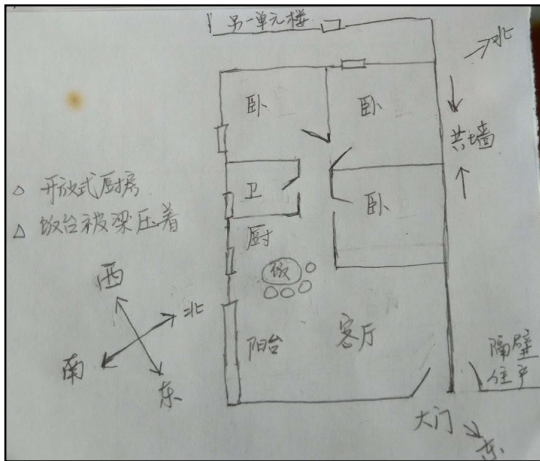 另一单元楼
北
卧
卧
共墙
开放式厨房
饭台被梁压着
卫
卧
厨
饭
西
北
南
东
阳台
客厅
隔壁
住户
大门
东